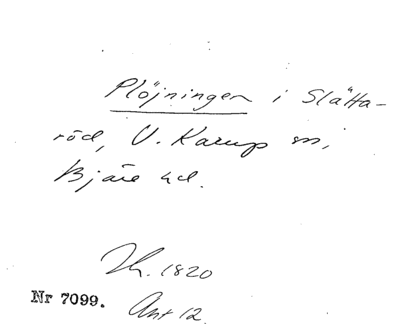 Plöjningen i Slätta-
röd, V. Karup sn,
Bjäre hd.
Th. 1820
Nr 7099. Ant 12.